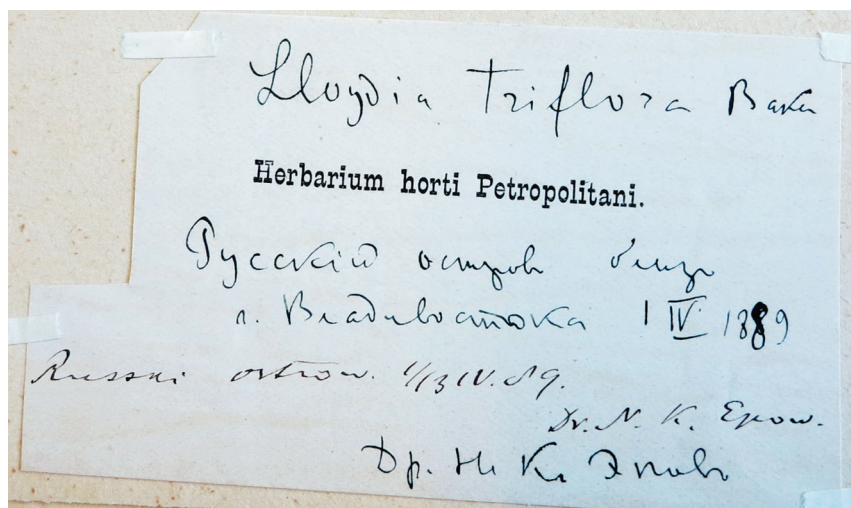 Lloydia triflora Baker
Herbarium horti Petropolitani.
Русскій островъ близъ
г. Владивостока 1 IV 1889
Russki ostrow. 1/13 IV. 89.
Dr. N. K. Epow.
Др. Н К Эповъ